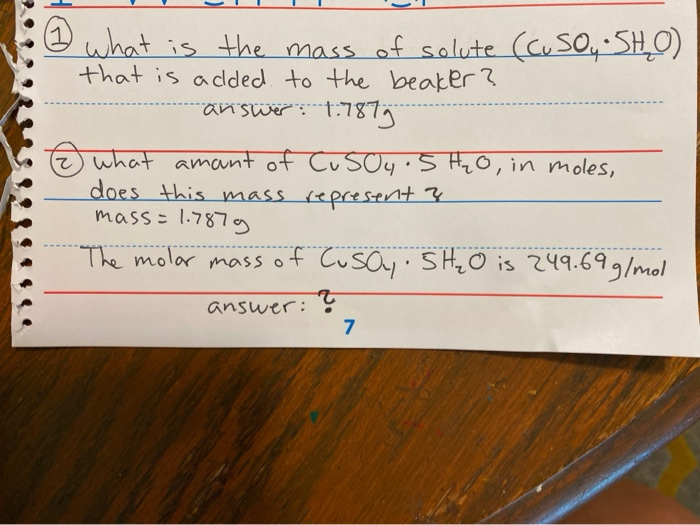 ① What is the mass of solute (CuSO₄·5H₂O)
that is added to the beaker?
answer: 1.787g
② what amount of CuSO₄·5 H₂O, in moles,
does this mass represent?
mass = 1.787g
The molar mass of CuSO₄·5H₂O is 249.69g/mol
answer: ?
7